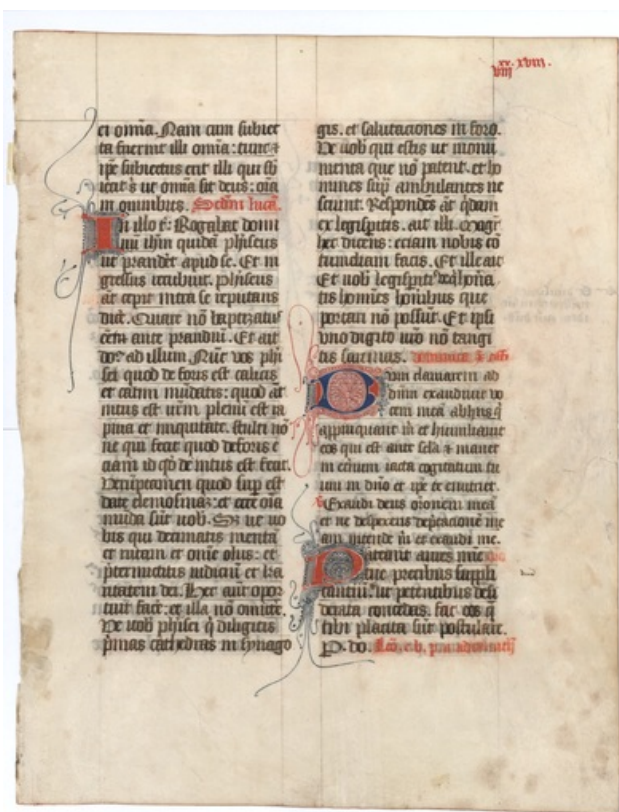 xx. xviij.
viij
ei om̄ia. Nam cum subiec
ta fuerint illi om̄ia: tunc ⁊
ip̄e subiectus erit illi qui sb̄
iecit s̄ ut om̄ia sit deus: om̄ia
in omnibus. Scd̄m lucā.
In illo t̄: Rogabat domi
nū ihm̄ quidā phiseus
ut prandēt apud se. Et in
gressus recubuit. Phiseus
at̄ cepit intra se reputans
dicē. Quare nō baptizatus
cēt̄ ante prandiū. Et ait
do⁹ ad illum. Nūc vos phi
sei quod de foris est calicis
et catini mūdatis: quod at̄
intus est ur̄m plenū est ra
pina et iniquitate. Stulti nō
ne qui fecit quod deforis ē
eciam id qd̄ de intus est fecit.
Verūptamen quod sup̄ est
date elemosinaꝫ: et ecce om̄ia
mūda sūt uob̄. Sꝫ ue uo
bis qui decimatis mentā
et rutam et om̄e olus: et
p̄termittitis iudiciū et ka
ritatem dei. Hec aūt opor
tuit facē: et illa nō omittē.
Ve uob̄ phisei q̄ diligitis
p̄mas cathedras in synago
gis. et salutaciones in foro.
Ve uob̄ qui estis ut monu
menta que nō patent. et ho
mines sup̄ ambulantes ne
sciunt. Respondēs at̄ q̄dam
ex legisp̄itis. ait illi. Magr̄
hec dicens: eciam nobis cō
tumeliam facis. Et ille ait
Et uob̄ legisp̄itis ue. q̄a hōna
tis homīes honibus que
portari nō possūt. Et ipsi
vno digito uro nō tangi
tis sarcinas. dominica
Dum clamarem ad
dn̄m exaudiuit vo
cem meā ab hiis q̄
appinquant m̄ et humiliauit
eos qui est ante sc̄la ⁊ manet
in et̄num iacta cogitatum tu
um in dn̄o et ip̄e te enutriet.
Exaudi deus or̄onem meā
et ne despexeris dep̄cacionē me
am intende m̄ et exaudi me.
Pateant aures mi͠e
tue precibus suppli
cantiū: ut petentibus desi
derata concedas. fac eos q̄
tibi placita sūt postulare.
P. do.